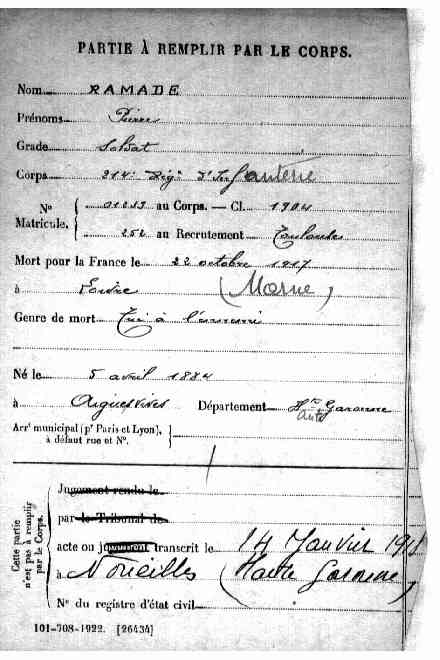 PARTIE À REMPLIR PAR LE CORPS.
Nom RAMADE
Prénoms Pierre
Grade Soldat
Corps 214e Regt d'Infanterie
No Matricule. { 01253 au Corps. — Cl. 1904
252 au Recrutement Toulouse
Mort pour la France le 22 octobre 1917
à (Marne)
Genre de mort Tué à l'ennemi
Né le 5 avril 1884
à Aiguesvives Département Hte Garonne
Arrt municipal (pr Paris et Lyon), à défaut rue et No.
Cette partie n'est pas à remplir par le Corps.
Jugement rendu le
par le Tribunal de
acte ou jugement transcrit le 14 Janvier 1918
à Noueilles (Haute Garonne)
No du registre d'état civil
101-708-1922. [26434]